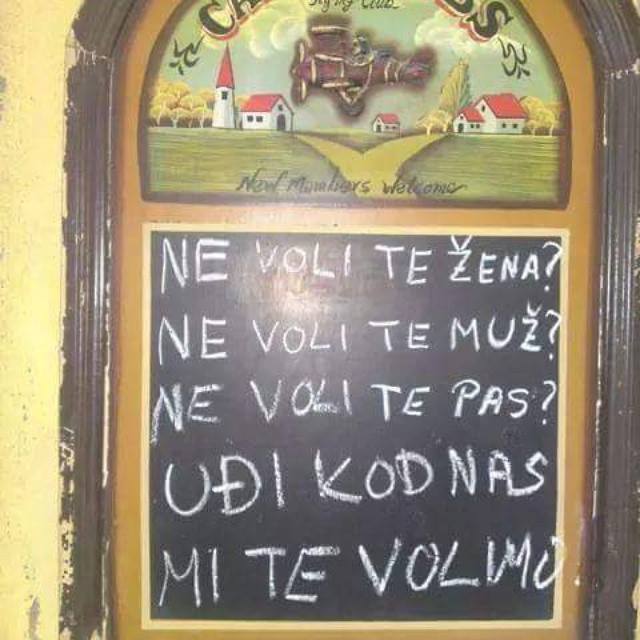 Flying Club
New Members Welcome
NE VOLI TE ŽENA?
NE VOLI TE MUŽ?
NE VOLI TE PAS?
UĐI KOD NAS
MI TE VOLIMO